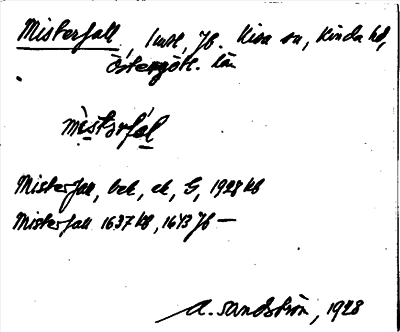 Misterfall, 1 mtl, Jb. Kisa sn, Kinda hd,
Östergötl. län
mistərfal
Misterfall, bek, ek, G, 1928 kb
Misterfall 1637 kb, 1643 Jb —
A. Sandström, 1928